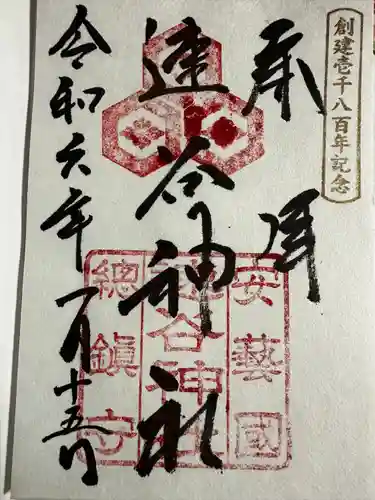 創建壱千八百年記念
奉拝
速谷神社
安藝國
速谷神社
總鎮守
令和六年一月十五日